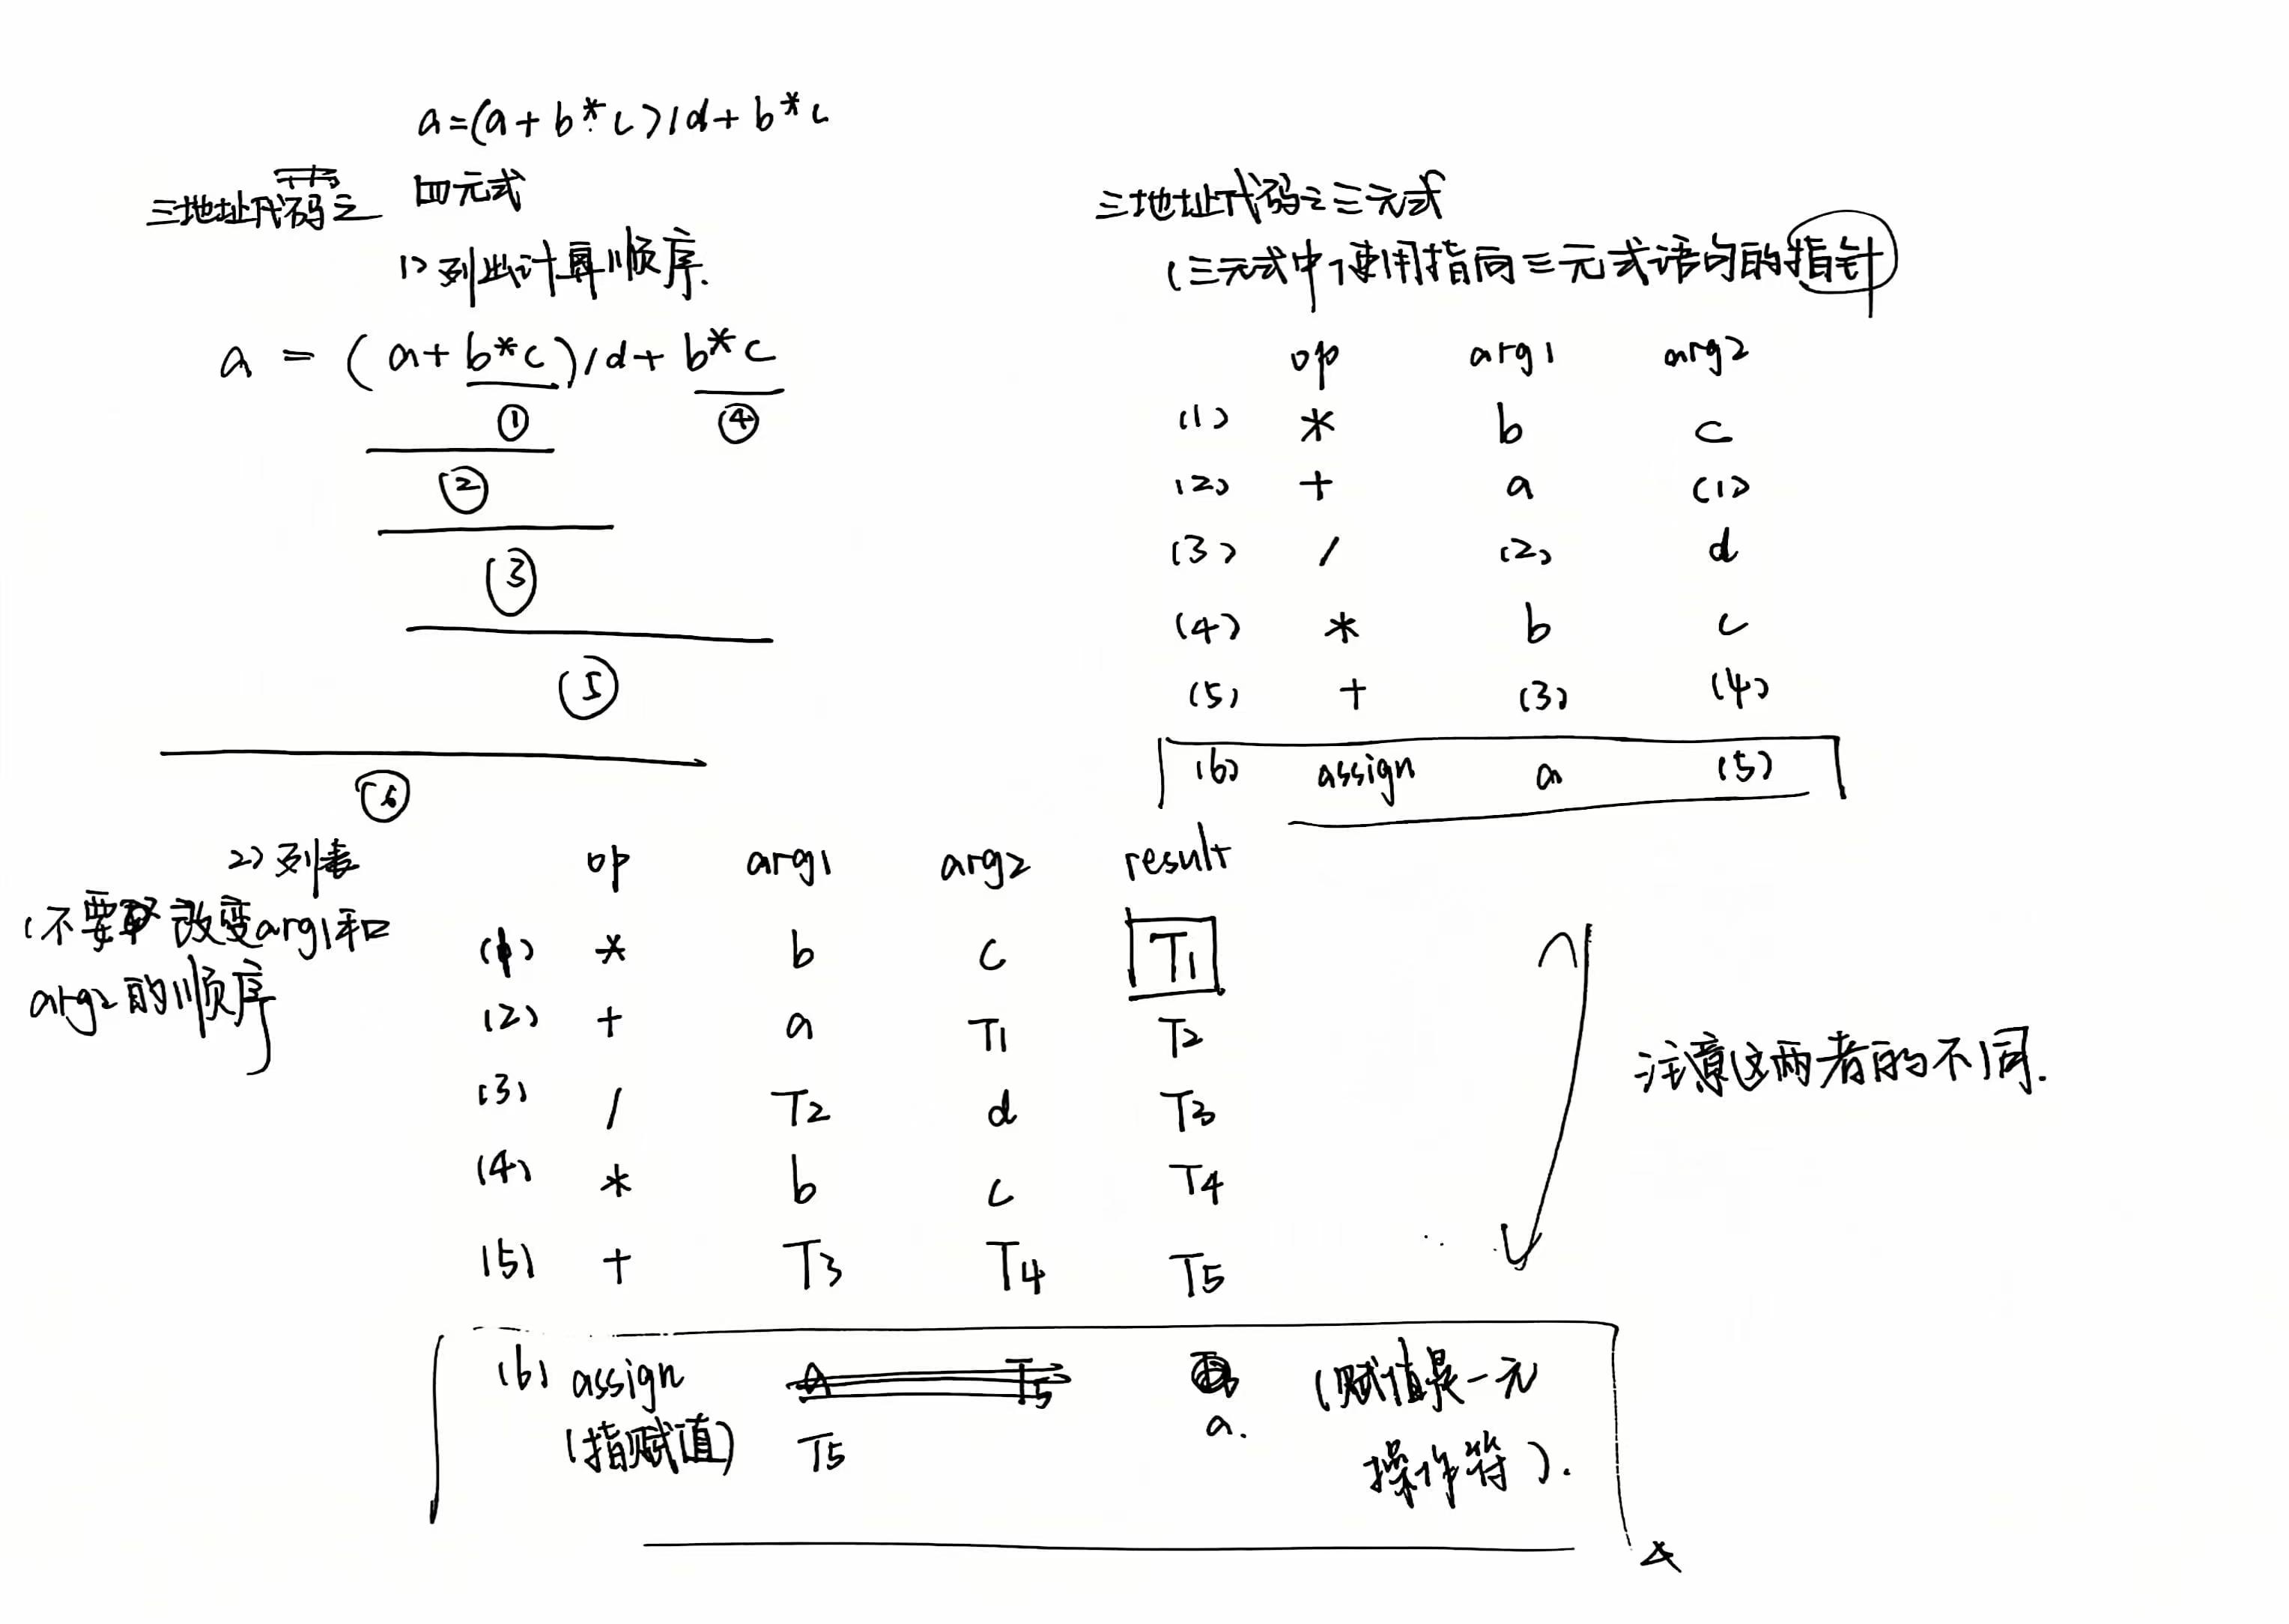 a=(a+b*c)/d+b*c
三地址代码之 四元式
1) 列出计算顺序.
a = (a+b*c)/d+b*c
① ④
②
③
⑤
⑥
2) 列表
(不要改变arg1和
arg2的顺序
op arg1 arg2 result
(1) * b c T1
(2) + a T1 T2
(3) / T2 d T3
(4) * b c T4
(5) + T3 T4 T5
(6) assign a T5 (赋值是一元
(指赋值) T5 a. 操作符).
三地址代码之三元式
(三元式中使用指向三元式语句的指针
op arg1 arg2
(1) * b c
(2) + a (1)
(3) / (2) d
(4) * b c
(5) + (3) (4)
(6) assign a (5)
注意这两者的不同.